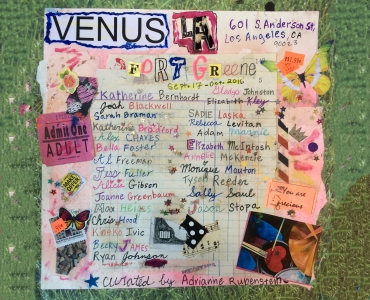 VENUS
LA
601 S. Anderson St,
Los Angeles, CA
90023
FORT GREENE
Sept. 17 - Oct. 2016
Katherine Bernhardt
Gladys Johnston
Josh Blackwell
Elizabeth Kley
Sarah Braman
SADIE Laska
Katherine Bradford
Rebecca Levitan
Alex CHAVES
Adam Marnie
Bella Foster
Elizabeth McIntosh
Al Freeman
Annie McKenzie
Jess Fuller
Monique Mouton
Alicia Gibson
Tyson Reeder
Joanne Greenbaum
Sally Saul
Max Holmes
Jason Stopa
Chris Hood
Kineko Ivic
Becky James
Ryan Johnson
Admit One
ADULT
You are
precious
Curated by Adrianne Rubenstein